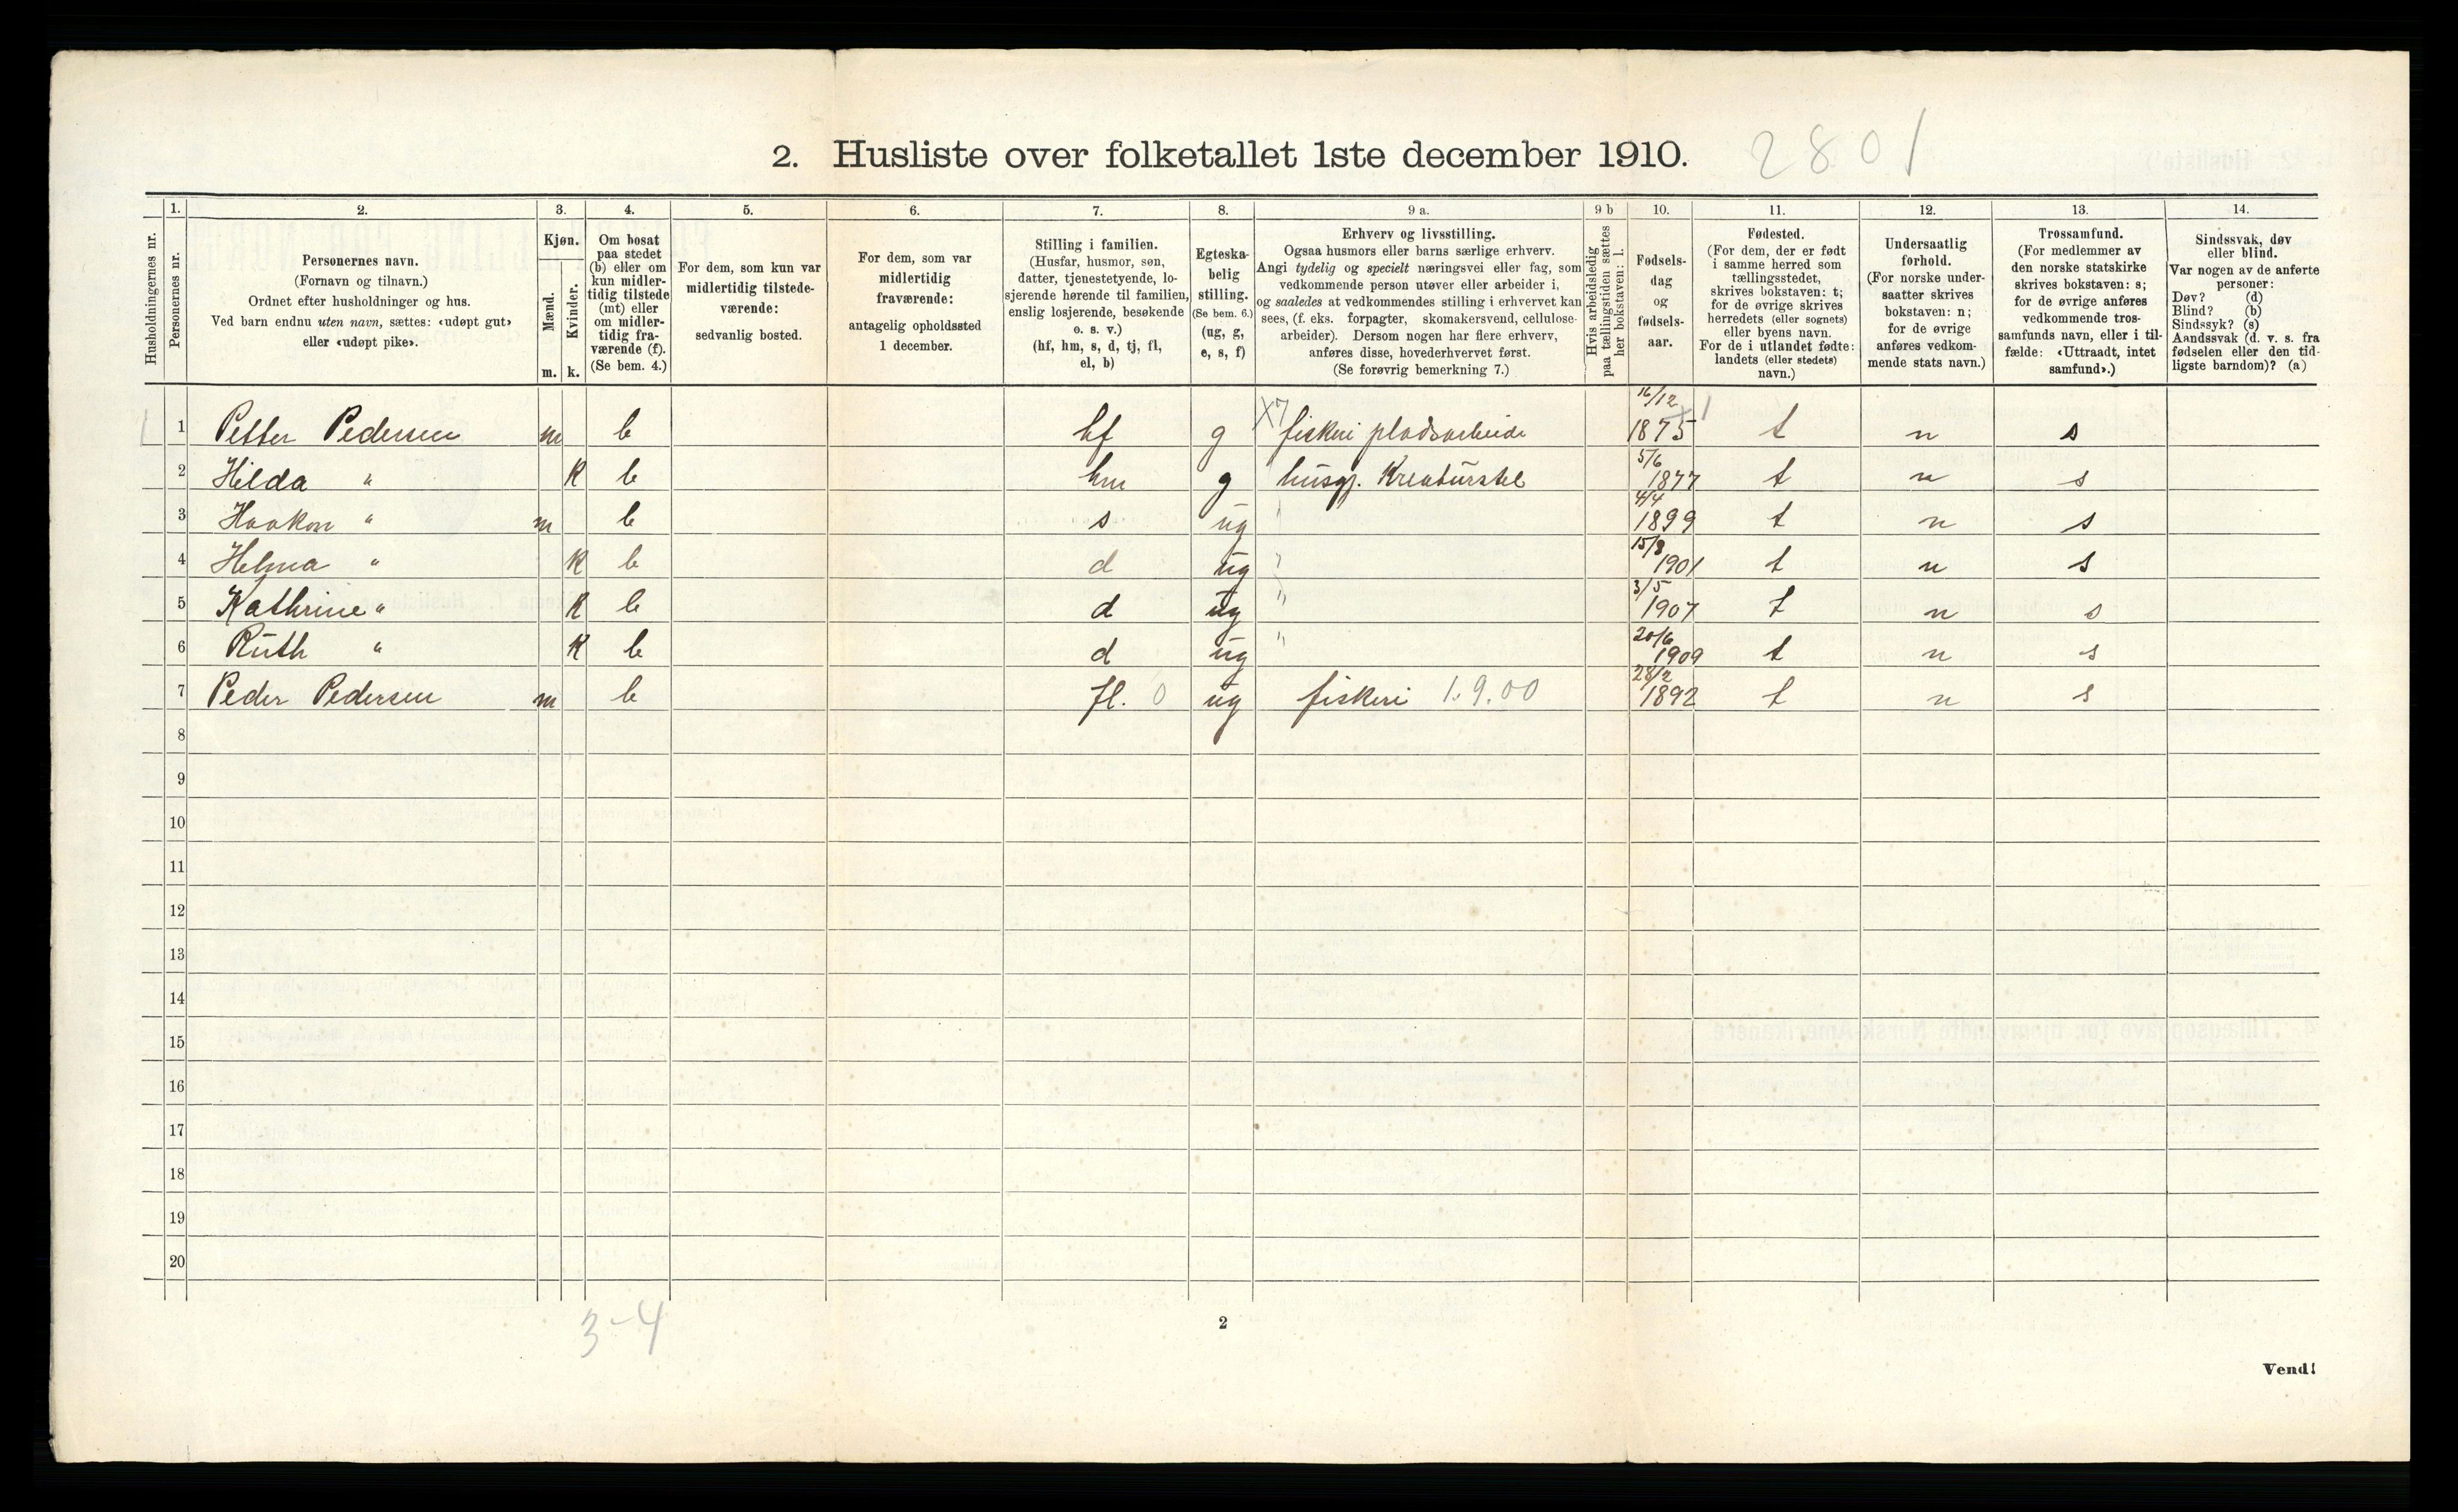 2. Husliste over folketallet 1ste december 1910. 2801
1. 2. 3. 4. 5. 6. 7. 8. 9 a. 9 b 10. 11. 12. 13. 14.
Husholdningernes nr.
Personernes nr.
Personernes navn.
(Fornavn og tilnavn.)
Ordnet efter husholdninger og hus.
Ved barn endnu uten navn, sættes: «udøpt gut»
eller «udøpt pike».
Kjøn.
Mænd.
Kvinder.
m. k.
Om bosat
paa stedet
(b) eller om
kun midler-
tidig tilstede
(mt) eller
om midler-
tidig fra-
værende (f).
(Se bem. 4.)
For dem, som kun var
midlertidig tilstede-
værende:
sedvanlig bosted.
For dem, som var
midlertidig
fraværende:
antagelig opholdssted
1 december.
Stilling i familien.
(Husfar, husmor, søn,
datter, tjenestetyende, lo-
sjerende hørende til familien,
enslig losjerende, besøkende
o. s. v.)
(hf, hm, s, d, tj, fl,
el, b)
Egteska-
belig
stilling.
(Se bem. 6.)
(ug, g,
e, s, f)
Erhverv og livsstilling.
Ogsaa husmors eller barns særlige erhverv.
Angi tydelig og specielt næringsvei eller fag, som
vedkommende person utøver eller arbeider i,
og saaledes at vedkommendes stilling i erhvervet kan
sees, (f. eks. forpagter, skomakersvend, cellulose-
arbeider). Dersom nogen har flere erhverv,
anføres disse, hovederhvervet først.
(Se forøvrig bemerkning 7.)
Hvis arbeidsledig
paa tællingstiden sættes
her bokstaven: l.
Fødsels-
dag
og
fødsels-
aar.
Fødested.
(For dem, der er født
i samme herred som
tællingsstedet,
skrives bokstaven: t;
for de øvrige skrives
herredets (eller sognets)
eller byens navn.
For de i utlandet fødte:
landets (eller stedets)
navn.)
Undersaatlig
forhold.
(For norske under-
saatter skrives
bokstaven: n;
for de øvrige
anføres vedkom-
mende stats navn.)
Trossamfund.
(For medlemmer av
den norske statskirke
skrives bokstaven: s;
for de øvrige anføres
vedkommende tros-
samfunds navn, eller i til-
fælde: «Uttraadt, intet
samfund».)
Sindssvak, døv
eller blind.
Var nogen av de anførte
personer:
Døv? (d)
Blind? (b)
Sindssyk? (s)
Aandssvak (d. v. s. fra
fødselen eller den tid-
ligste barndom)? (a)
1 1 Petter Pedersen m b hf g X7 fiskeri pladsarbeide 16/12 1875 t n s
2 Hilda " k b hm g husgj. Kreaturstel 5/6 1877 t n s
3 Haakon " m b s ug " 4/4 1899 t n s
4 Helma " k b d ug " 15/8 1901 t n s
5 Kathrine " k b d ug " 3/5 1907 t n s
6 Ruth " k b d ug " 20/6 1909 t n s
7 Peder Pedersen m b fl. 0 ug fiskeri 1.9.00 28/2 1892 t n s
8
9
10
11
12
13
14
15
16
17
18
19
20
3-4
2
Vend!